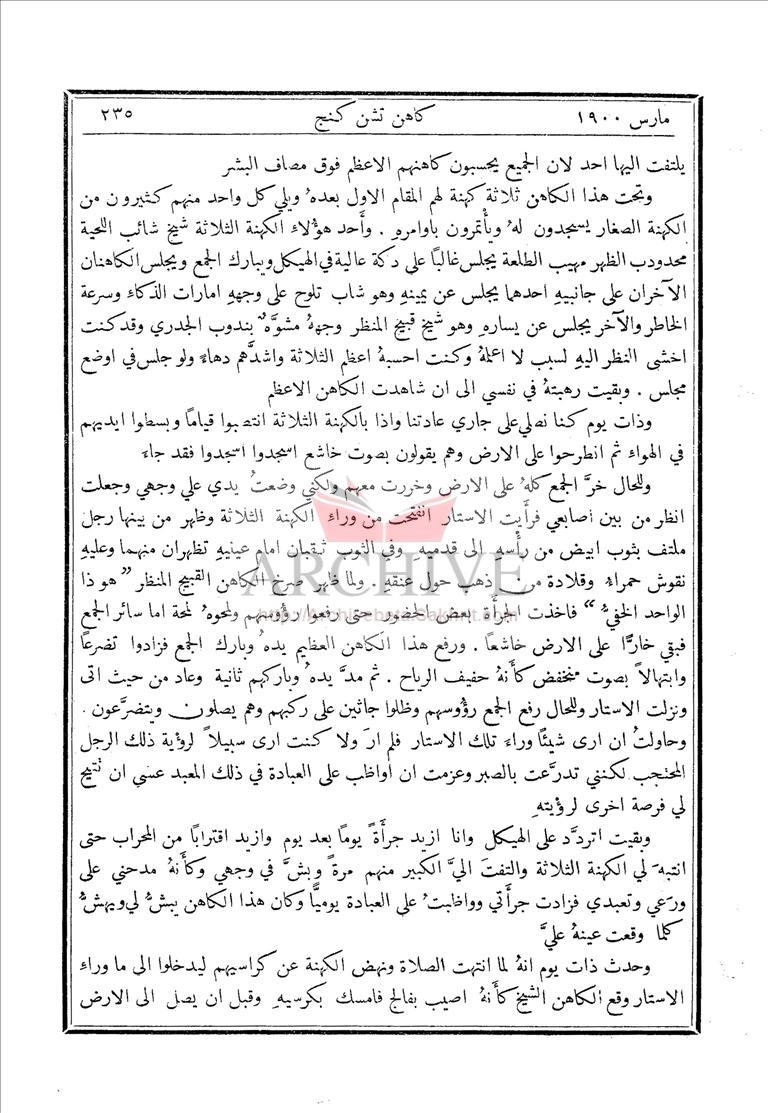 مارس ١٩٠٠ كاهن تشن كنج ٢٣٥
يلتفت اليها احد لان الجميع يحسبون كاهنهم الاعظم فوق مصاف البشر
وتحت هذا الكاهن ثلاثة كهنة لهم المقام الاول بعدهُ ويلي كل واحد منهم كثيرون من
الكهنة الصغار يسجدون لهُ ويأتمرون باوامرهِ . وأحد هؤلاء الكهنة الثلاثة شيخ شائب اللحية
محدودب الظهر مهيب الطلعة يجلس غالبًا على دكة عالية في الهيكل ويبارك الجمع ويجلس الكاهنان
الآخران على جانبيهِ احدهما يجلس عن يمينهِ وهو شاب تلوح على وجههِ امارات الذكاء وسرعة
الخاطر والآخر يجلس عن يسارهِ وهو شيخ قبيح المنظر وجههُ مشوَّه بندوب الجدري وقد كنت
اخشى النظر اليهِ لسبب لا اعلمهُ وكنت احسبهُ اعظم الثلاثة واشدَّهم دهاءً ولو جلس في اوضع
مجلس . وبقيت رهبتهُ في نفسي الى ان شاهدت الكاهن الاعظم
وذات يوم كنا نصلي على جاري عادتنا واذا بالكهنة الثلاثة انتصبوا قيامًا وبسطوا ايديهم
في الهواء ثم انطرحوا على الارض وهم يقولون بصوت خاشع اسجدوا اسجدوا فقد جاء
وللحال خرَّ الجمع كلهُ على الارض وخررت معهم ولكني وضعتُ يدي علي وجهي وجعلت
انظر من بين اصابعي فرأيت الاستار انفتحت من وراء الكهنة الثلاثة وظهر من بينها رجل
ملتف بثوب ابيض من رأسهِ الى قدميهِ وفي الثوب ثقبان امام عينيهِ تظهران منهما وعليهِ
نقوش حمراء وقلادة من ذهب حول عنقهِ . ولما ظهر صرخ الكاهن القبيح المنظر " هو ذا
الواحد الخفيُّ " فاخذت الجرأَة بعض الحضور حتى رفعوا رؤوسهم ولمحوهُ لمحة اما سائر الجمع
فبقي خارًّا على الارض خاشعًا . ورفع هذا الكاهن العظيم يدهُ وبارك الجمع فزادوا تضرعًا
وابتهالاً بصوت منخفض كأنهُ حفيف الرياح . ثم مدَّ يدهُ وباركهم ثانية وعاد من حيث اتى
ونزلت الاستار وللحال رفع الجمع رؤوسهم وظلوا جاثين على ركبهم وهم يصلون ويتضرَّعون .
وحاولتُ ان ارى شيئًا وراء تلك الاستار فلم ارَ ولا كنت ارى سبيلاً لرؤية ذلك الرجل
المحتجب لكنني تدرَّعت بالصبر وعزمت ان اواظب على العبادة في ذلك المعبد عسى ان تتيح
لي فرصة اخرى لرؤيتهِ
وبقيت اتردَّد على الهيكل وانا ازيد جرأةً يومًا بعد يوم وازيد اقترابًا من المحراب حتى
انتبهَ لي الكهنة الثلاثة والتفتَ اليَّ الكبير منهم مرةً وبشَّ في وجهي وكأنهُ مدحني على
ورعي وتعبدي فزادت جرأتي وواظبتُ على العبادة يوميًّا وكان هذا الكاهن يبشُّ لي ويهشُّ
كلما وقعت عينهُ عليَّ
وحدث ذات يوم انهُ لما انتهت الصلاة ونهض الكهنة عن كراسيهم ليدخلوا الى ما وراء
الاستار وقع الكاهن الشيخ كأنهُ اصيب بفالج فامسك بكرسيهِ وقبل ان يصل الى الارض
ARCHIVE